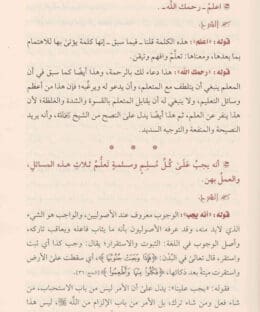 اعلم - رحمك الله -.
[الشرح]
قوله: «اعلم»: هذه الكلمة قلنا - فيما سبق - إنها كلمة يؤتى بها للاهتمام
بما بعدها، ومعناها: تعلَّم وافهم وتيقن.
قوله: «رحمك الله»: هذا دعاء لك بالرحمة، وهذا أيضًا كما سبق في أن
المعلم ينبغي أن يتلطف مع المتعلم، وأن يدعو له ويرغِّبه؛ فإن هذا من أعظم
وسائل التعليم، ولا ينبغي له أن يقابل المتعلم بالقسوة والشدة والغلظة؛ لأن
هذا ينفر عن العلم، ثم هذا أيضًا يدل على النصح من الشيخ وأنه يريد
النصيحة والمنفعة والتوجيه السديد.
* * *
أنه يجبُ عَلَىٰ كُلِّ مُسْلِمٍ ومسلمةٍ تَعلُّمُ ثَلاثِ هذه المسائلِ،
والعملُ بهن.
[الشرح]
قوله: «أنه يجب»: الوجوب معروف عند الأصوليين، والواجب هو الشيء
الذي لابد منه، وقد عرفه الأصوليون بأنه ما يثاب فاعله ويعاقب تاركه،
وأصل الوجوب في اللغة: الثبوت والاستقرار؛ يقال: وجب كذا أي ثبت
واستقر، قال تعالىٰ في البُدْن: ﴿فَإِذَا وَجَبَتْ جُنُوبُهَا﴾، أي سقطت علىٰ الأرض
واستقرت ميتة بعد ذكاتها، ﴿فَكُلُوا مِنْهَا وَأَطْعِمُوا﴾ [الحج: ٣٦].
فقوله: «يجب علينا»: يدل علىٰ أن الأمر ليس من باب الاستحباب، من
شاء فعل ومن شاء ترك، بل الأمر من باب الإلزام من الله ﷻ، ليس هذا